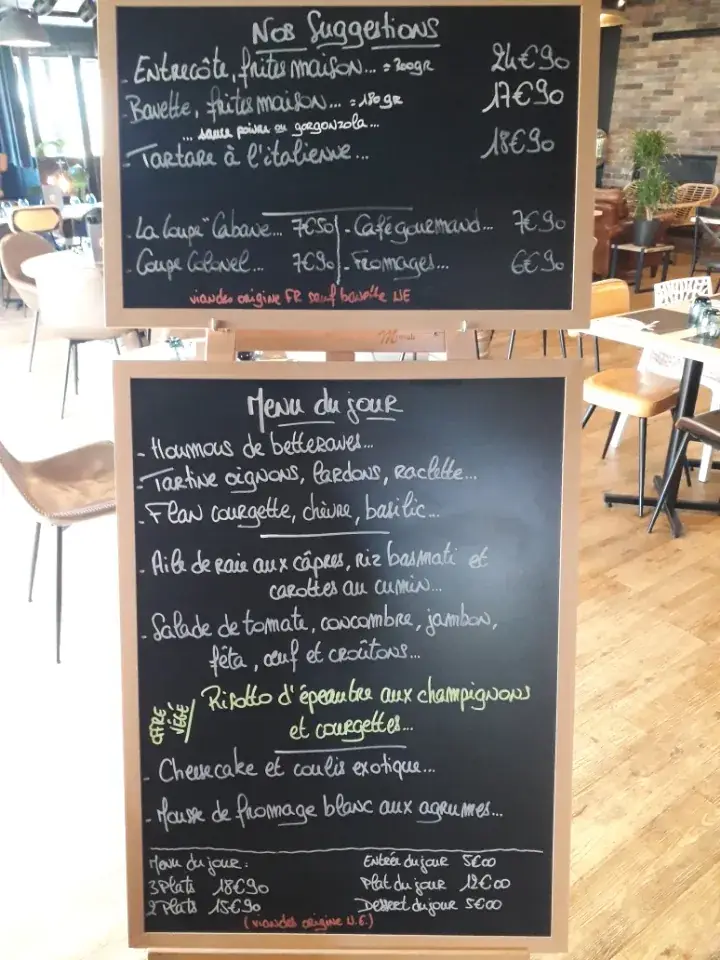 Nos Suggestions
- Entrecôte, frites maison... = 300gr 24€90
- Bavette, frites maison... = 180gr 17€90
... sauce poivre ou gorgonzola...
- Tartare à l'italienne... 18€90
- La Coupe "Cabane... 7€50 - Café gourmand... 7€90
- Coupe Colonel... 7€90 - Fromages... 6€90
viandes origine FR sauf bavette UE
Menu du jour
- Houmous de betteraves...
- Tartine oignons, lardons, raclette...
- Flan courgette, chèvre, basilic...
- Aile de raie aux câpres, riz basmati et
carottes au cumin...
- Salade de tomate, concombre, jambon,
fêta, œuf et croûtons...
OFFRE VÉGÉ / Risotto d'épeautre aux champignons
et courgettes...
- Cheesecake et coulis exotique...
- Mousse de fromage blanc aux agrumes...
Menu du jour: Entrée du jour 5€00
3 Plats 18€90 Plat du jour 12€00
2 Plats 15€90 Dessert du jour 5€00
(viandes origine U.E.)